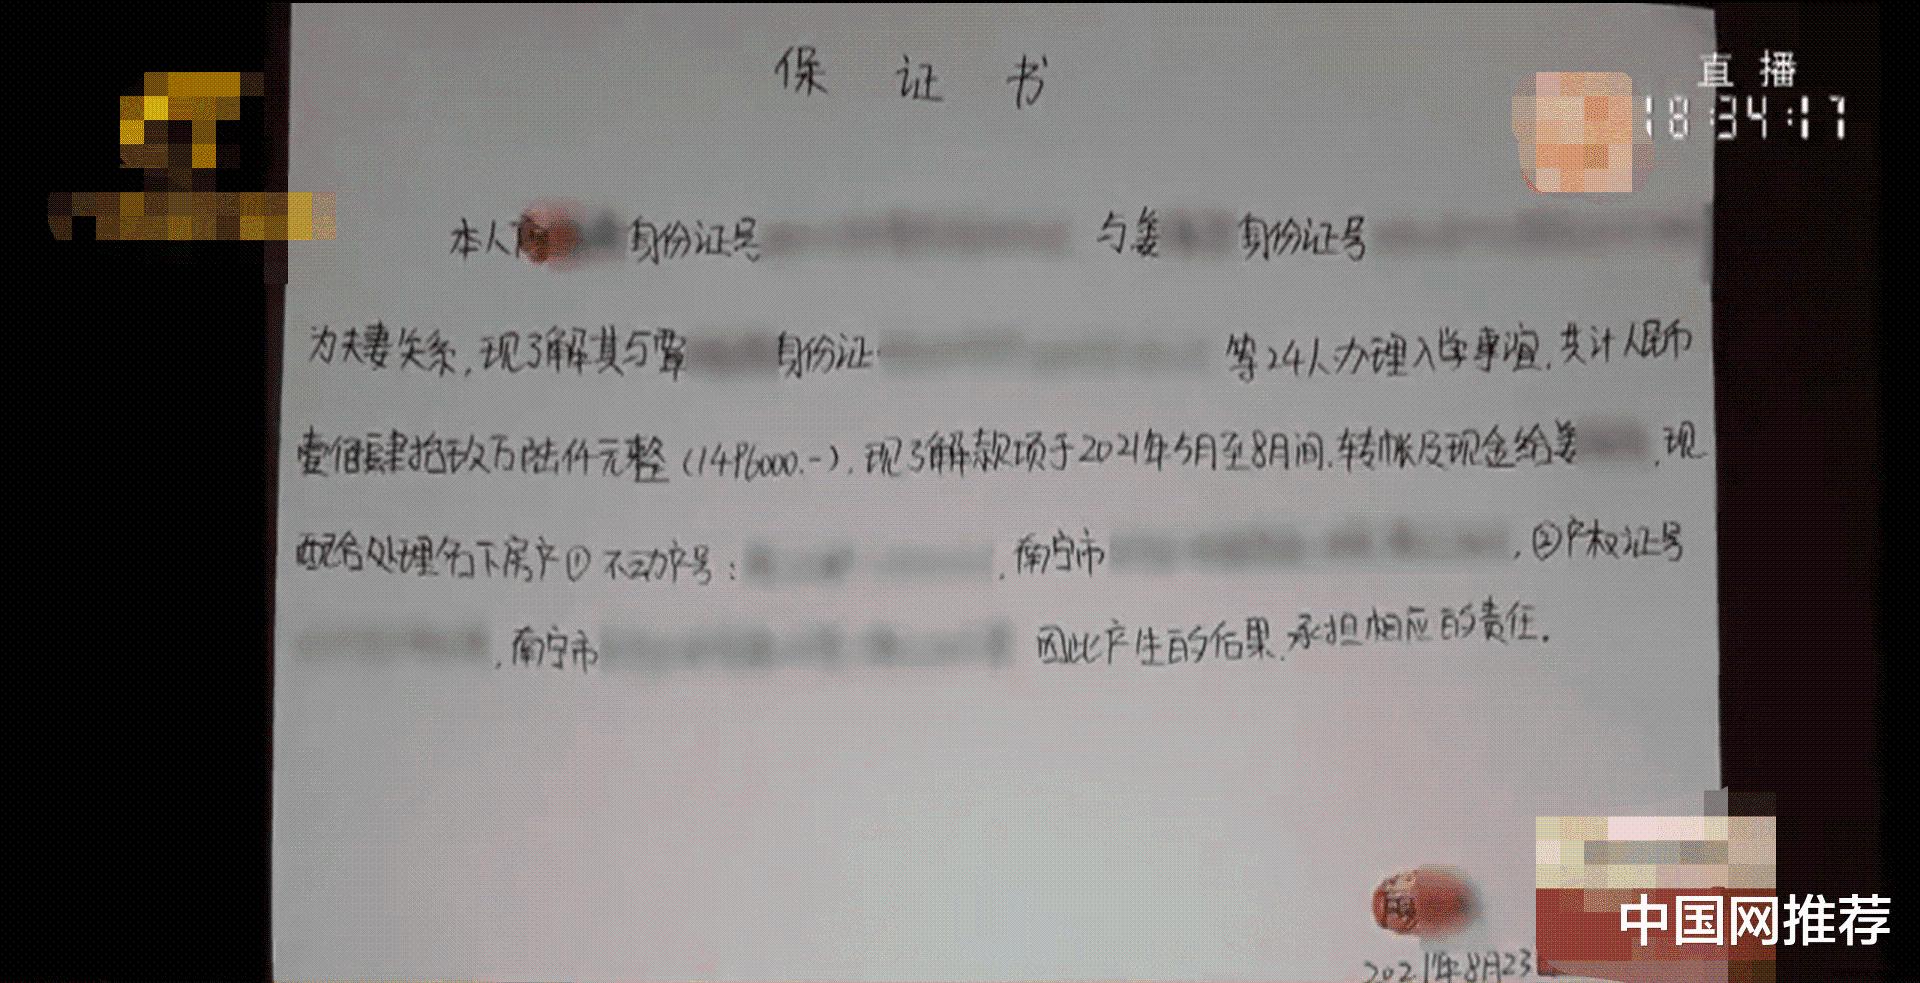 保 证 书
直播
18:34:17
本人 身份证号 与姜 身份证号
为夫妻关系,现了解其与覃 身份证 等24人办理入学事宜,共计人民币
壹佰肆拾玖万陆仟元整(1496000.-),现了解款项于2021年5月至8月间,转帐及现金给姜 ,现
配合处理名下房产①不动产号: ,南宁市 ,②产权证号
,南宁市 因此产生的后果,承担相应的责任.
2021年8月23
中国网推荐